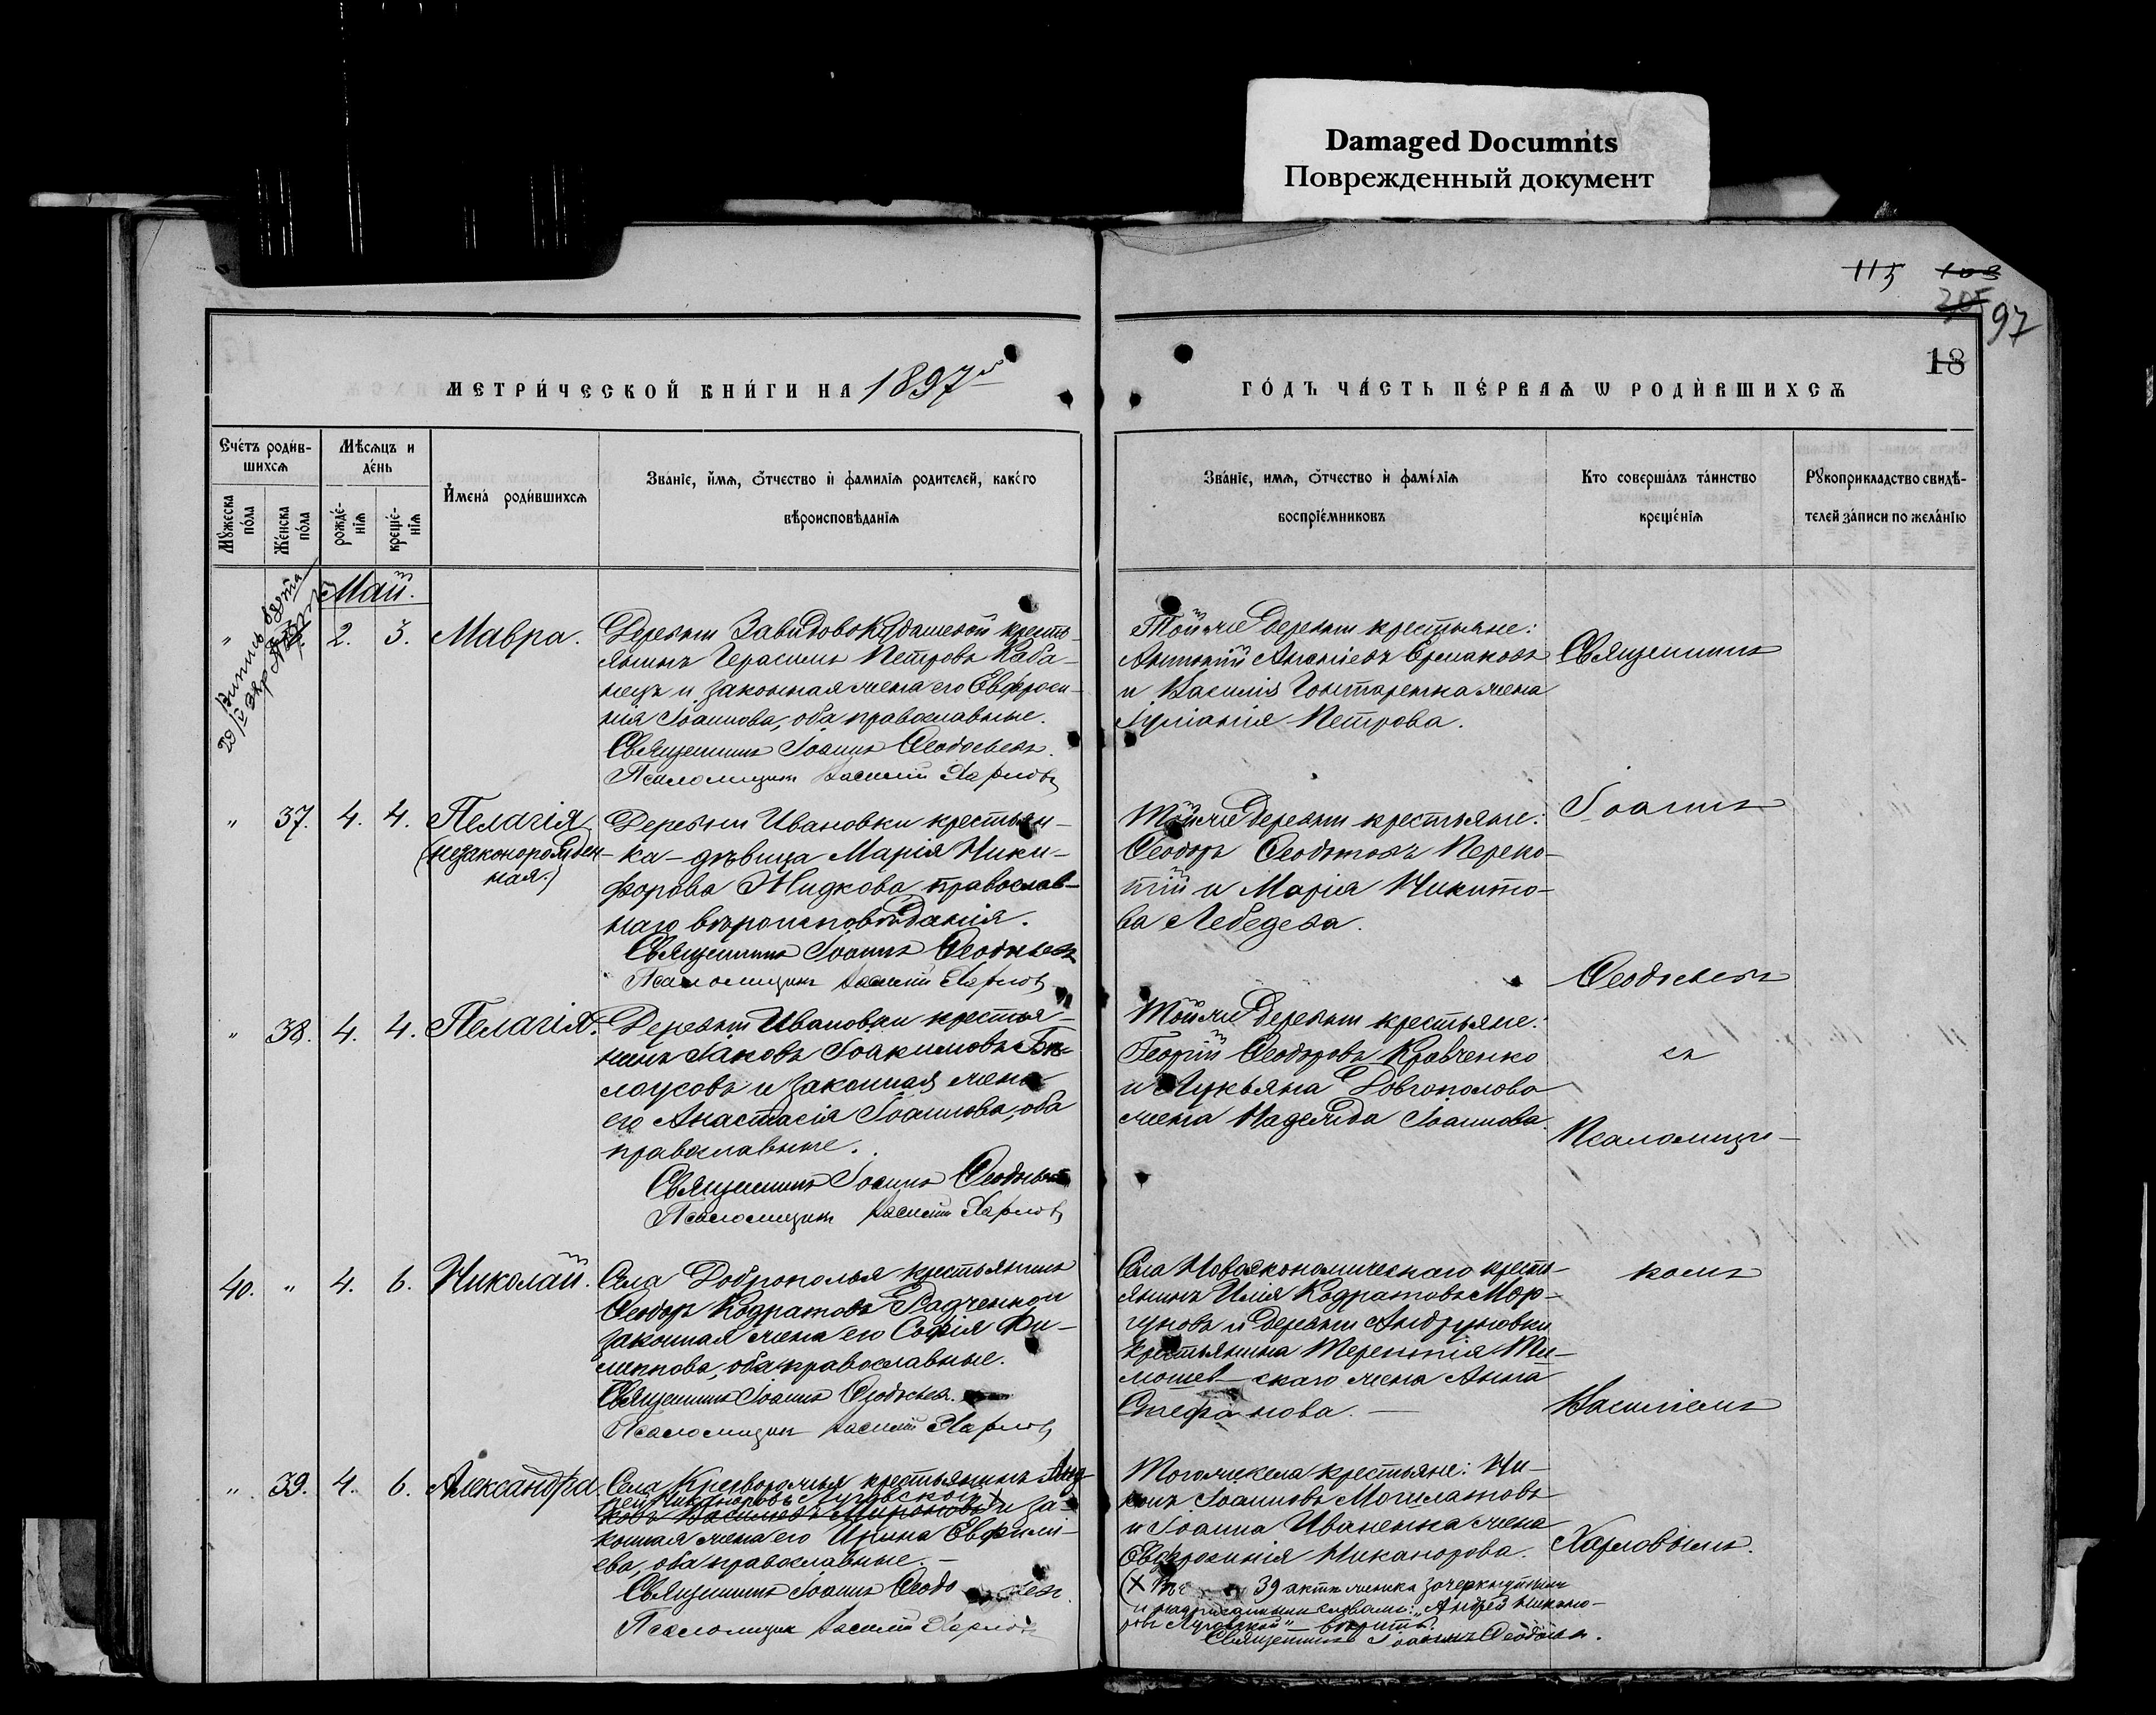 Damaged Documnts
Поврежденный документ
115
97
18
МЕТРИ́ЧЕСКОЙ КНИ́ГИ НА 1897й
ГО́ДЪ ЧА́СТЬ ПЕ́РВАѦ Ѡ РОДИ́ВШИХСѦ
Сче́тъ роди́в-
шихсѧ
Мѣ́сѧцъ и
де́нь
Мꙋ́жеска
по́ла
Же́нска
по́ла
рожде́-
нїѧ
креще́-
нїѧ
И҆мена̀ роди́вшихсѧ
Зва́нїе, и҆́мѧ, ѻ҆́тчество и҆ фамилїѧ родителей, како́го
вѣроисповѣ́данїѧ
Зва́нїе, имѧ, ѻ҆́тчество и҆ фамі́лїѧ
воспрїе́мниковъ
Кто соверша́лъ та́инство
креще́нїѧ
Рꙋкоприкладство свидѣ́-
телей за́писи по жела́нїю
Май.
" 2. 3. Мавра.
Деревни Завидово Кудашевой кресть-
янинъ Герасимъ Петровъ Каба-
нецъ и законная жена его Евфроси-
нія Іоаннова, оба православные.
Священникъ Іоаннъ Ѳеодосьевъ.
Псаломщикъ Василій Харловъ
Тойже деревни крестьяне:
Антоній Ермаковъ
и Василія Гонтаренка жена
Іуліанія Петрова.
Священникъ
" 37. 4. 4. Пелагія
(незаконорожден-
ная.)
Деревни Ивановки крестьян-
ка-дѣвица Марія Ники-
форова Жидкова православ-
наго вѣроисповѣданія.
Священникъ Іоаннъ Ѳеодосьевъ
Псаломщикъ Василій Харловъ
Тойже деревни крестьяне:
Ѳеодоръ Ѳеодотовъ Переко-
тій и Марія Никито-
ва Лебедева.
Іоаннъ
Ѳеодосьевъ
" 38. 4. 4. Пелагія.
Деревни Ивановки крестья-
нинъ Іаковъ Іоакимовъ Бѣ-
лоусовъ и законная жена
его Анастасія Іоаннова, оба
православные.
Священникъ Іоаннъ Ѳеодосьевъ
Псаломщикъ Василій Харловъ
Тойже деревни крестьяне:
Георгій Ѳеодоровъ Кравченко
и Лукьяна Довгополова
жена Надежда Іоаннова.
съ
Псаломщи-
40. " 4. 6. Николай.
Села Доброполья крестьянинъ
Ѳеодоръ Кодратовъ Радченко и
законная жена его Софія Фи-
липпова, оба православные.
Священникъ Іоаннъ Ѳеодосьевъ.
Псаломщикъ Василій Харловъ
Села Новоэкономическаго кресть-
янинъ Илія Кодратовъ Мор-
гуновъ и деревни Андрушовки
крестьянина Терентія Ти-
мошев-скаго жена Анна
Стефанова.
комъ
Василіемъ
" 39. 4. 6. Александра
Села Криворожья крестьянинъ Анд-
рей Никаноровъ Луговской X
ковъ Васильевъ Мироновъ и за-
конная жена его Ирина Евфимі-
ева, оба православные.
Священникъ Іоаннъ Ѳеодосьевъ.
Псаломщикъ Василій Харловъ
Тогоже села крестьяне: Ни-
Іоанновъ Могилатовъ
и Іоанна Иваненка жена
Евфросинія Никанорова.
Харловымъ.
(X 39 актѣ зачеркнутымъ
и надписаннымъ словамъ: "Андрей Никано-
ровъ Луговской" - вѣрить.
Священникъ Іоаннъ Ѳеодосьевъ.